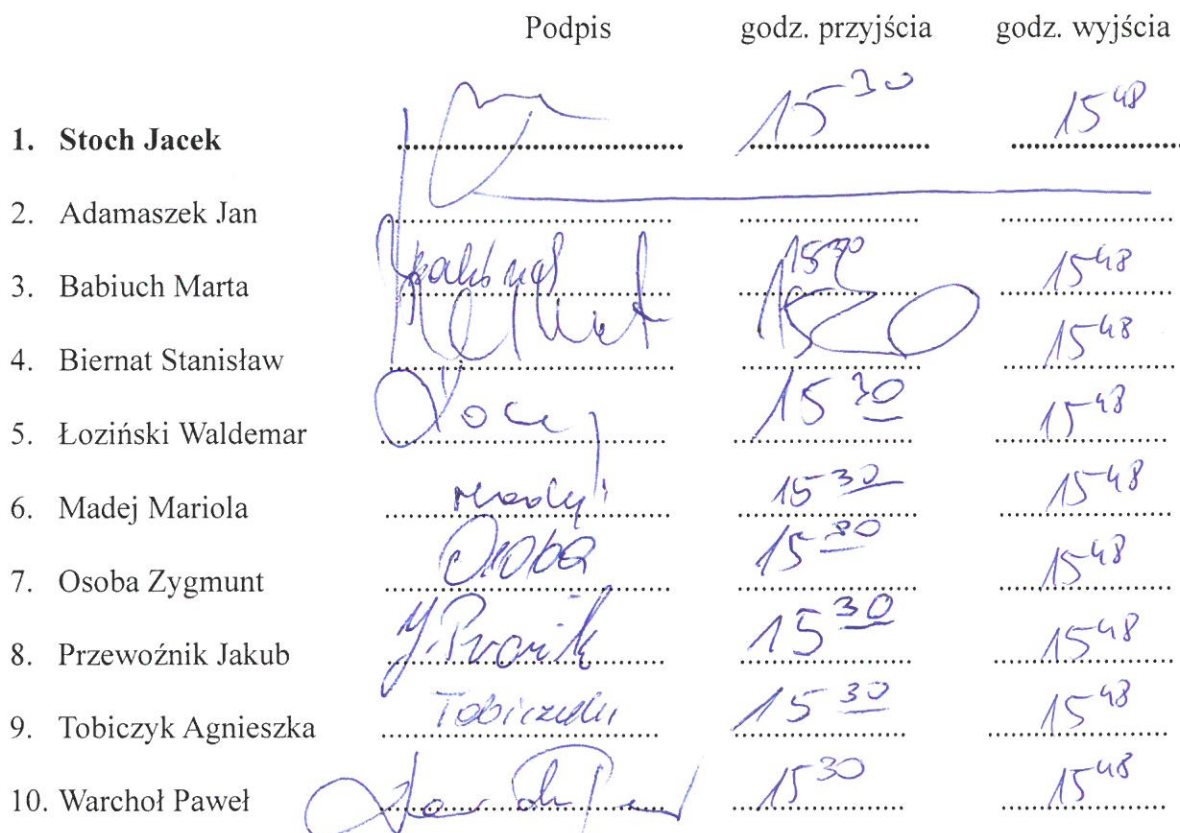 Podpis godz. przyjścia godz. wyjścia
1. Stoch Jacek 15 30 15 48
2. Adamaszek Jan
3. Babiuch Marta 15 30 15 48
4. Biernat Stanisław 15 48
5. Łoziński Waldemar 15 30 15 48
6. Madej Mariola Madej 15 30 15 48
7. Osoba Zygmunt Osoba 15 30 15 48
8. Przewoźnik Jakub 15 30 15 48
9. Tobiczyk Agnieszka 15 30 15 48
10. Warchoł Paweł 15 30 15 48